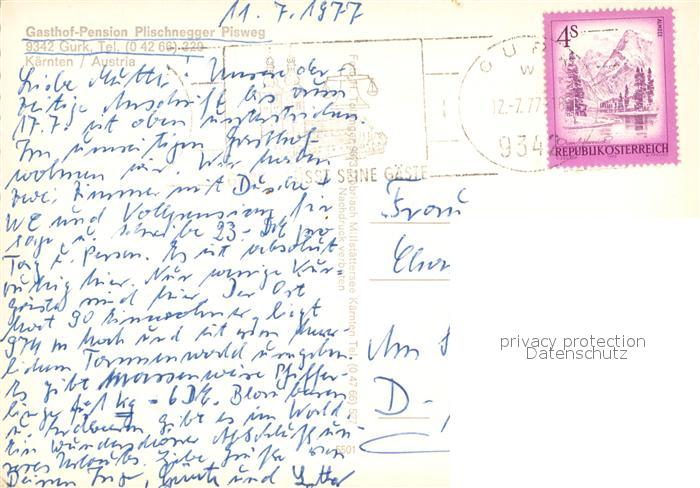 11.7.1977
Gasthof-Pension Plischnegger Pisweg
9342 Gurk, Tel. (0 42 66) 329
Kärnten / Austria
Liebe Mutti! Unsere der-
zeitige Anschrift bis zum
17.7. ist oben unterstrichen.
Im Gasthof
wohnen wir. Wir haben
zwei Zimmer mit Dusche
WC und Vollpension für
sage u. schreibe 23,- DM pro
Tag u. Person. Es ist absolut
ruhig hier. Nur wenige Kur-
gäste sind hier. Der Ort
hat 90 Einwohner, liegt
974 m hoch und ist von
Tannenwald umgeben.
Es gibt massenweise Pfiffer-
linge für 1 kg - 6 DM. Blaubeeren
u. Erdbeeren gibt es im Wald
Ein wunderschöner Abschluß un-
seres Urlaubs. Liebe Grüße von
Deinen und Lotter
Millstättersee Kärnten Tel. (0 47 66) 527
Nachdruck verboten
SEINE GÄSTE
GURK
12.-7.77-18
9342
4S
ALMSEE
REPUBLIK ÖSTERREICH
Frau
Am
D-
privacy protection
Datenschutz